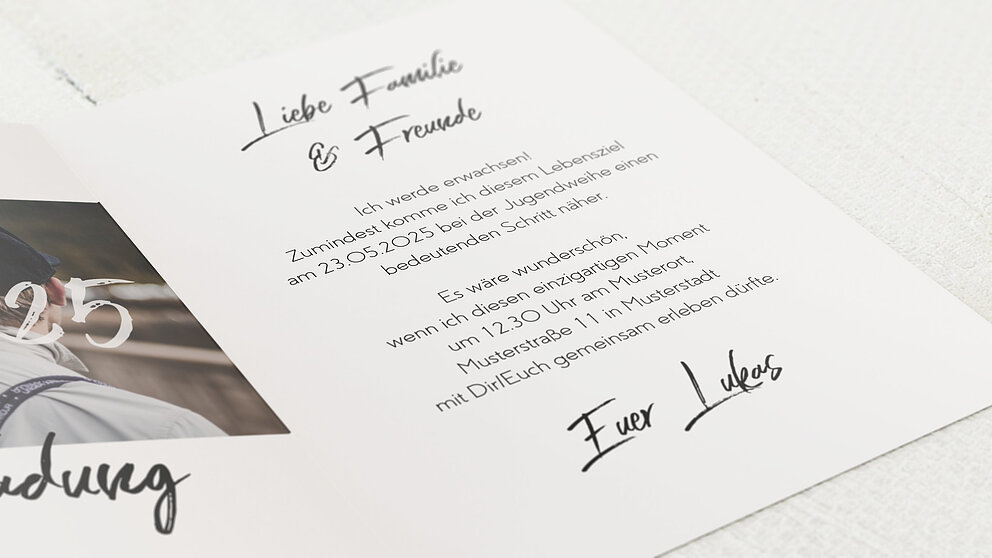 Liebe Familie
& Freunde
Ich werde erwachsen!
Zumindest komme ich diesem Lebensziel
am 23.05.2025 bei der Jugendweihe einen
bedeutenden Schritt näher.
Es wäre wunderschön,
wenn ich diesen einzigartigen Moment
um 12.30 Uhr am Musterort,
Musterstraße 11 in Musterstadt
mit Dir/Euch gemeinsam erleben dürfte.
Euer Lukas
25
dung